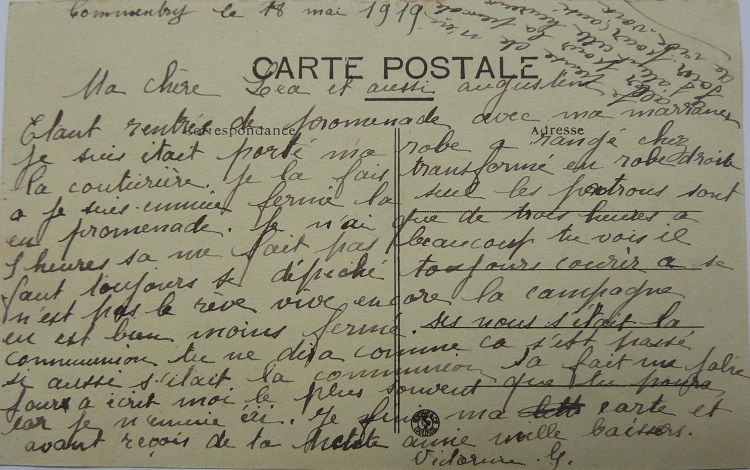 Commentry le 18 mai 1919
CARTE POSTALE
Correspondance
Adresse
Ma chère Léa et aussi augustine
Etant rentrée de promenade avec ma marraine
je suis était porté ma robe a rangé chez
la couturière. je la fais transformé en robe droite
a je suis ennuié fermé la seul les patrons sont
en promenade. Je n'ai que de trois heures a
5 heures sa me fait pas beaucoup tu vois il
faut toujours se dépeché toujours courir a se
n'est pas le rève vive encore la campagne
en est bien moins fermé. ses nous s'était la
communion tu ne dira comme ca s'est passé
si aussi s'était la communion sa fait me
jours a écrit moi le plus souvent que tu pourra
car je n'ennuie ici. Je ma carte et
avant reçois de ta amie mille baisers.
Victorine G.